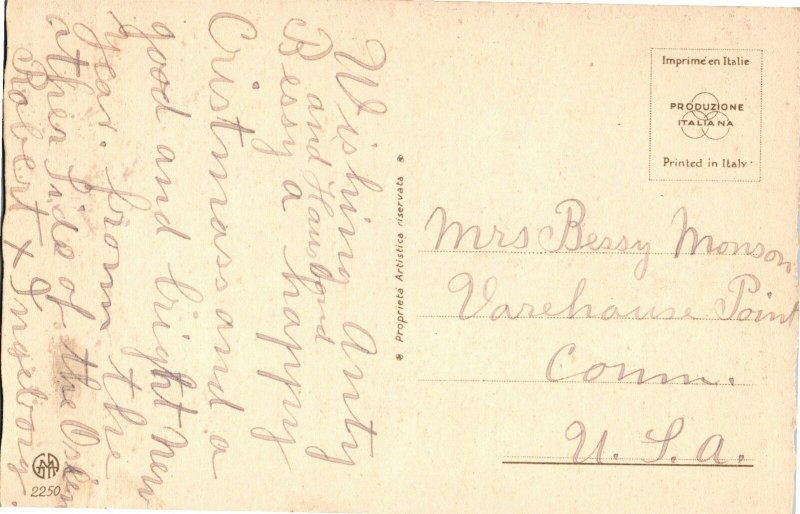 Wishing Anty
and Hausband
Bessy a happy
Cristmass and a
good and bright New
year. from the
other side of the
Robert + Ingeborg.
Proprietà Artistica riservata
2250
Imprimé en Italie
PRODUZIONE
ITALIANA
Printed in Italy
Mrs Bessy Monson
Varehouse Point
Conn.
U.S.A.